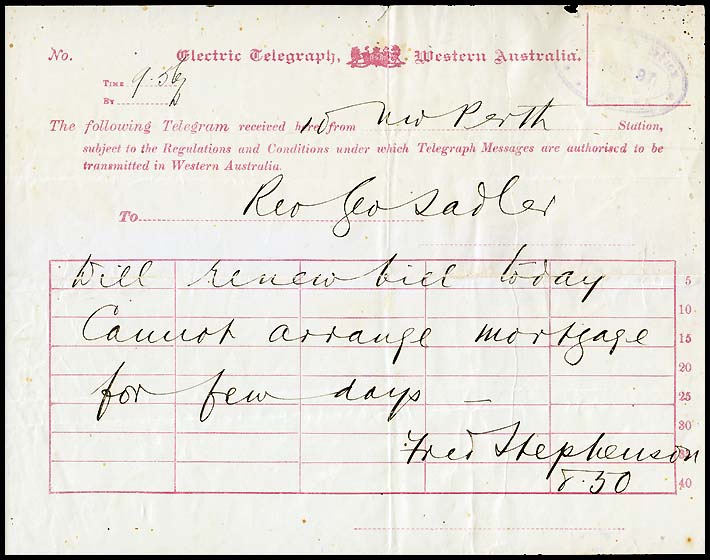 No. Electric Telegraph, Western Australia.
TIME 9.56
BY
The following Telegram received here from Perth Station,
subject to the Regulations and Conditions under which Telegraph Messages are authorised to be
transmitted in Western Australia.
To Rev Geo Sadler
Will renew bill today
5
10
Cannot arrange mortgage
15
20
for few days —
25
30
Fred Stephenson
8.50
40